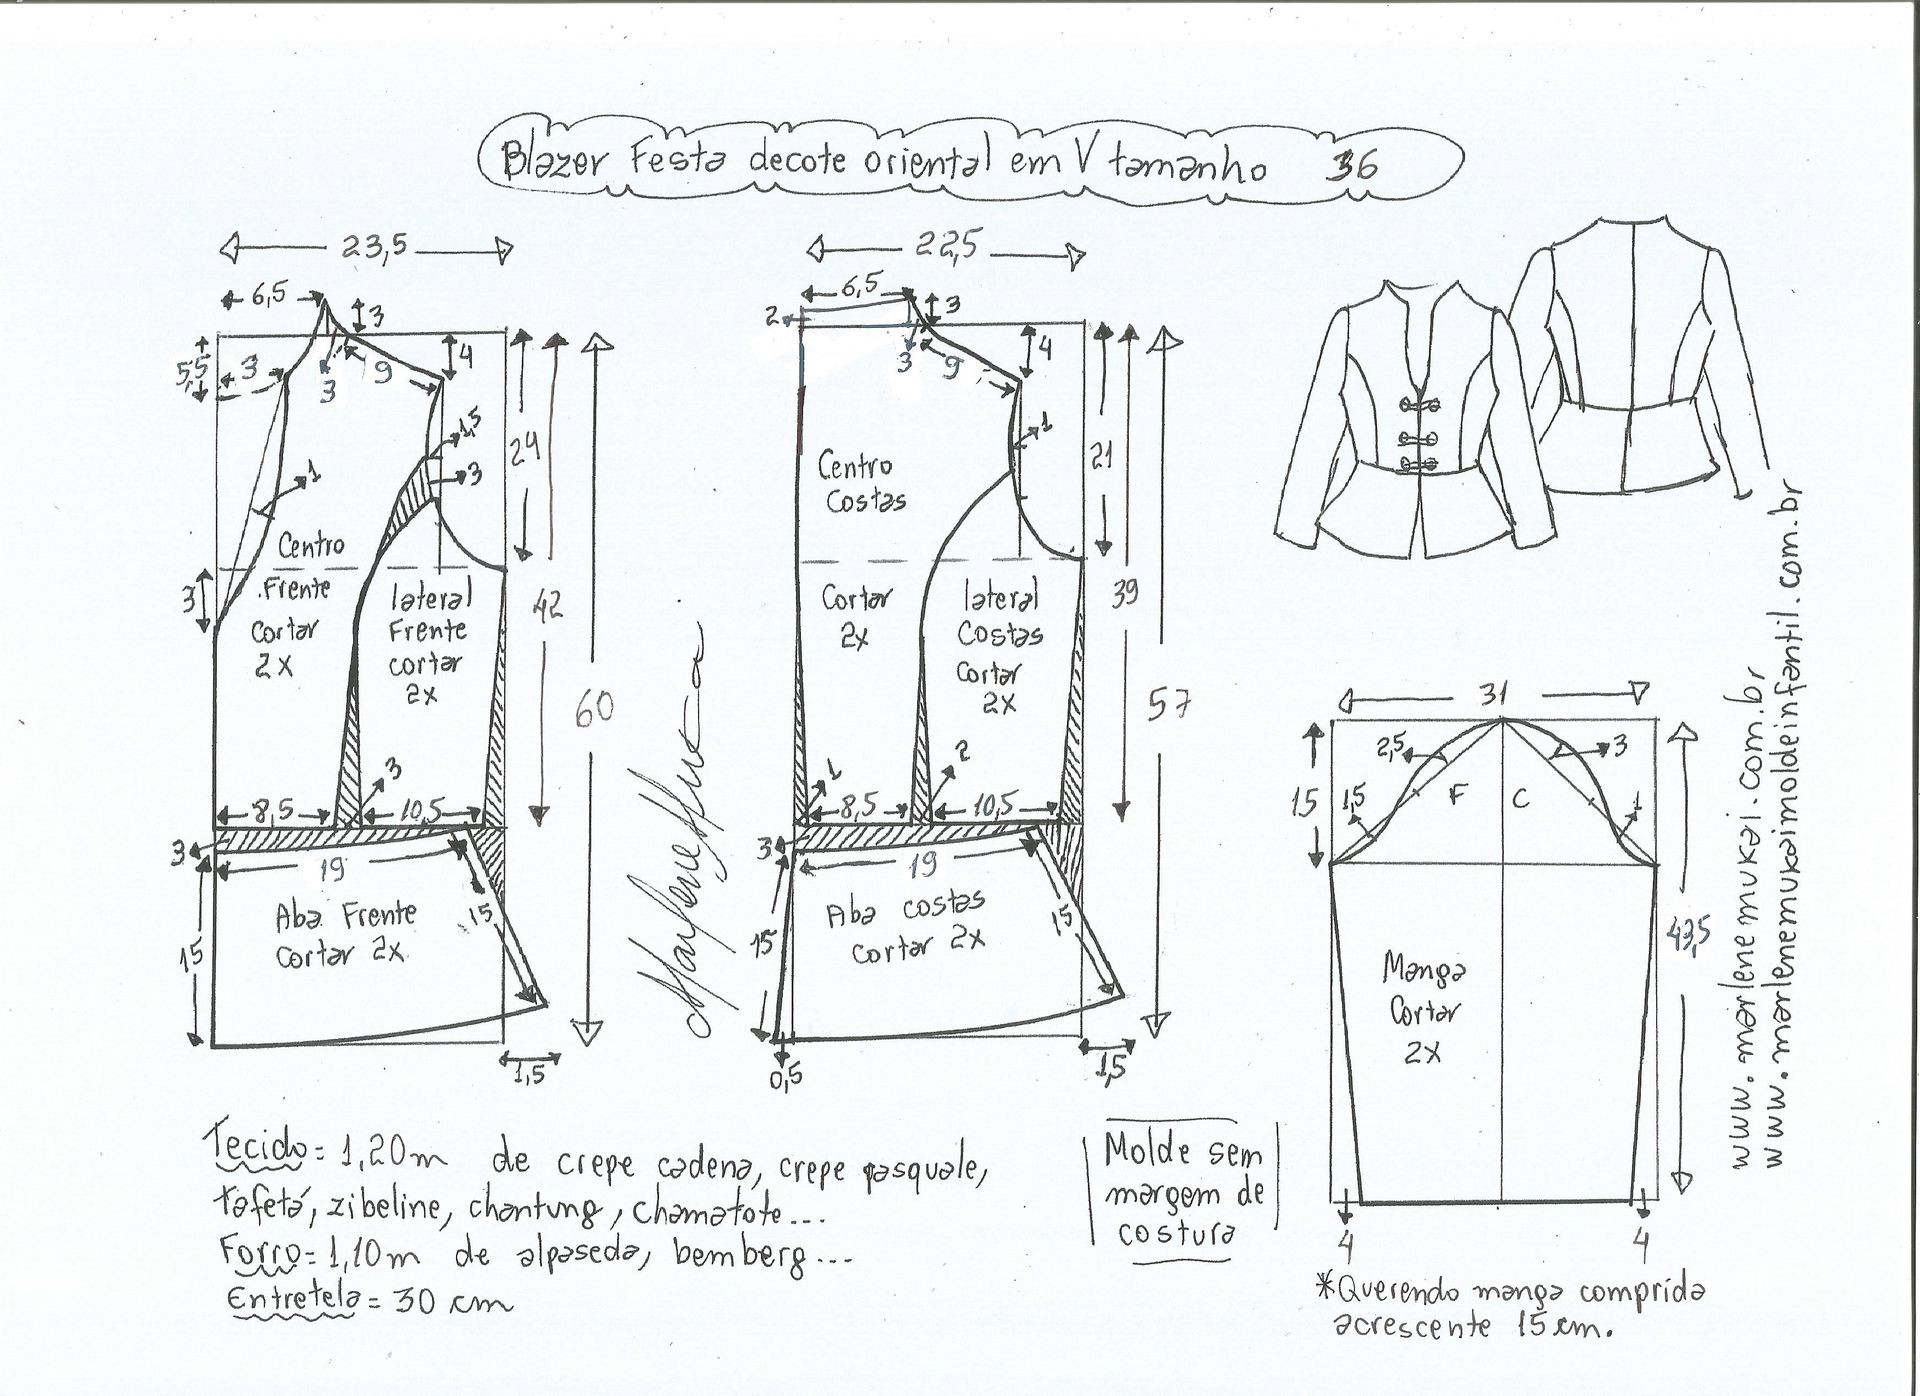 Blazer Festa decote oriental em V tamanho 36
23,5
6,5
3
5,5
3
3
9
4
1,5
3
1
24
42
60
3
Centro
Frente
cortar
2x
lateral
Frente
cortar
2x
3
8,5
10,5
3
19
15
15
Aba Frente
cortar 2x
1,5
22,5
6,5
2
3
3
9
4
1
21
39
57
Centro
Costas
Cortar
2x
lateral
Costas
Cortar
2x
1
2
8,5
10,5
3
19
15
15
Aba costas
cortar 2x
0,5
1,5
31
2,5
3
15
1,5
F
C
1
43,5
Manga
Cortar
2x
4
4
*Querendo manga comprida
acrescente 15 cm.
www.marlenemukai.com.br
www.marlenemukaimoldeinfantil.com.br
Tecido = 1,20m de crepe cadena, crepe pasquale,
tafetá, zibeline, chantung, chamatote...
Forro = 1,10m de alpaseda, bemberg...
Entretela = 30 cm
Molde sem
margem de
costura